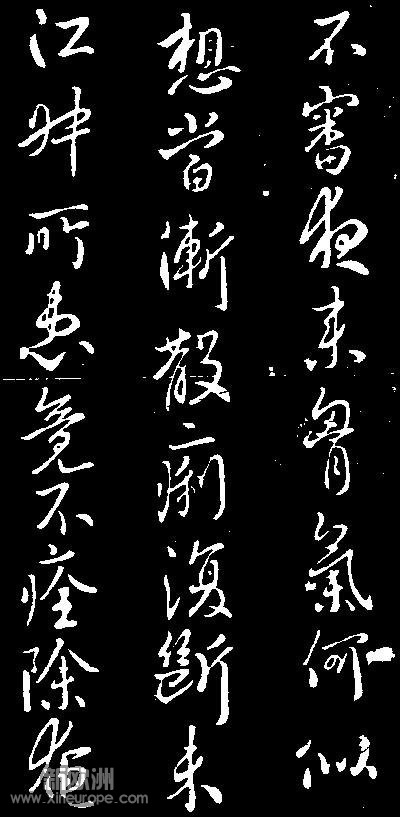 不審夜来胷氣何似
想當漸散二痢復斷未
江所患竟不痊除夜
新欧洲
www.xineurope.com